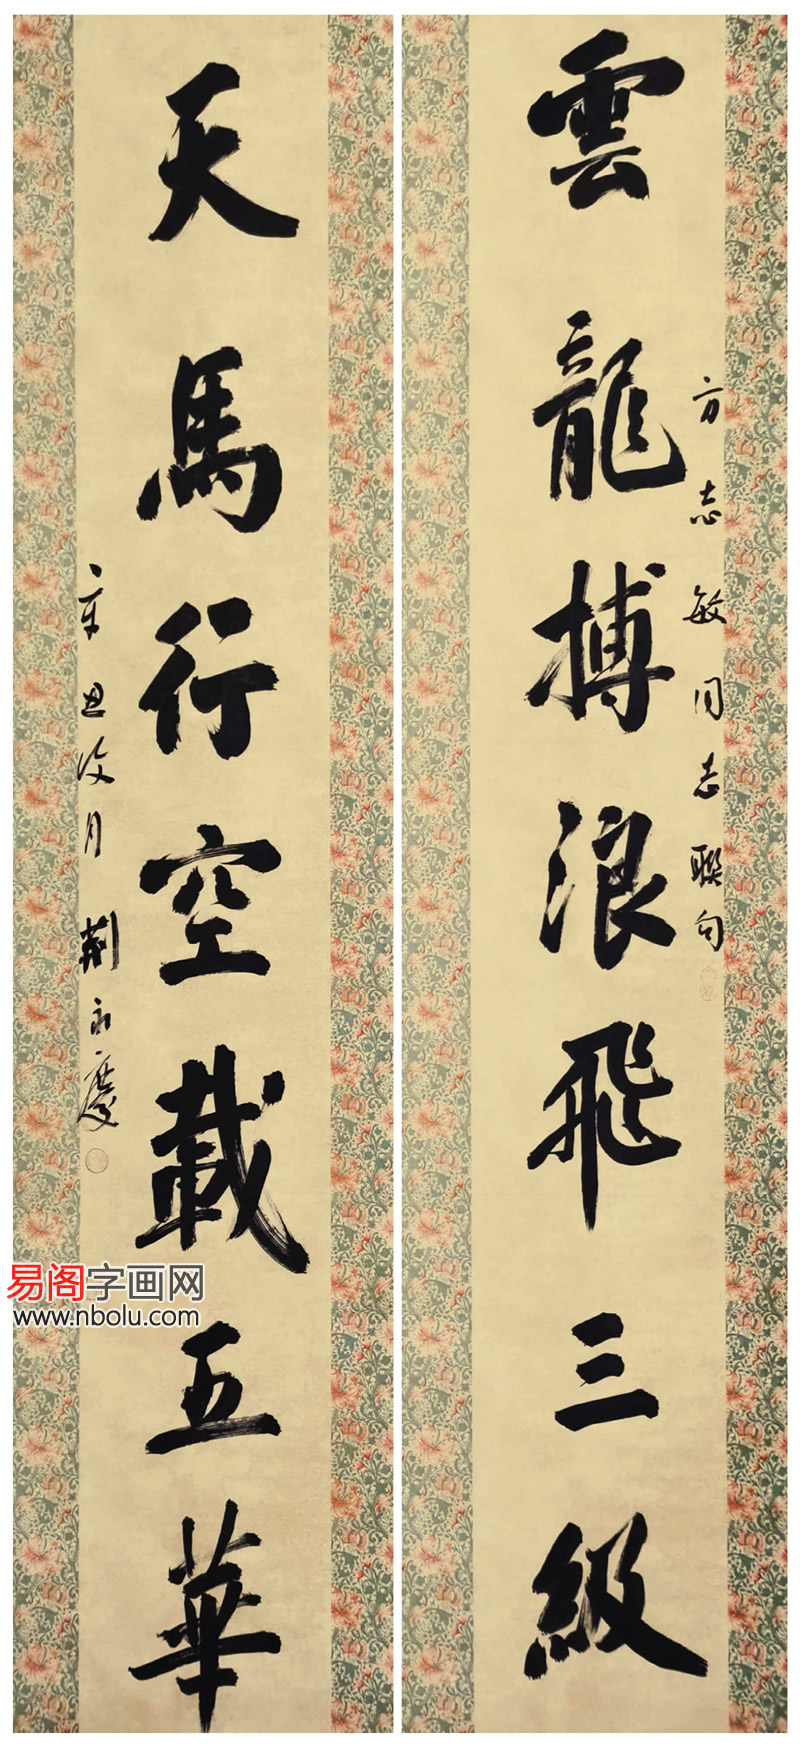 雲龍搏浪飛三級
方志敏同志聯句
天馬行空載五華
辛丑汝月 荆永慶
易阁字画网
www.nbolu.com